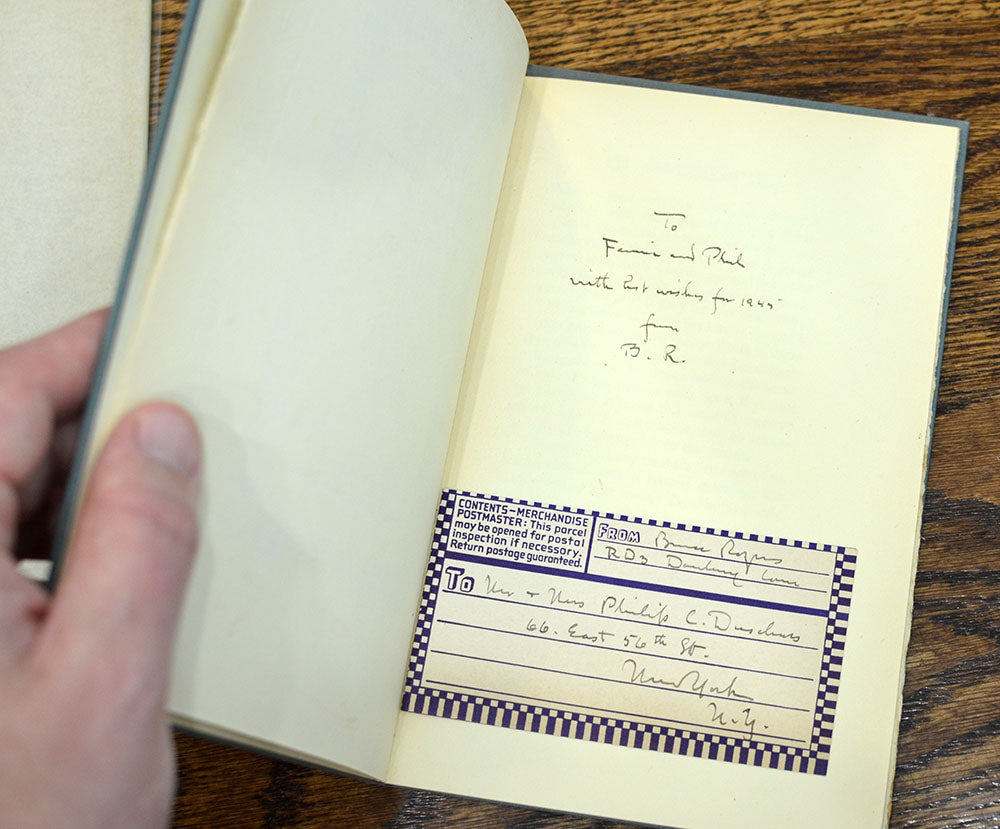 To
Fannie and Phil
with best wishes for 1945
from
B. R.
CONTENTS–MERCHANDISE
POSTMASTER: This parcel
may be opened for postal
inspection if necessary.
Return postage guaranteed.
FROM Bruce Rogers
RD3 Danbury Conn
To Mr & Mrs Philip C. Duschnes
66. East 56th St.
New York
N.Y.